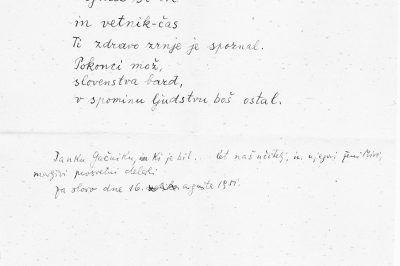 in vetnik-čas
Ti zdravo zrnje je spoznal.
Pokonci mož,
slovenstva bard,
v spominu ljudstvu boš ostal.
Janku Gačniku, ki je bil . let naš učitelj, in njegovi ženi
marljivi prosvetni delavki
za slovo dne 16. avgusta 1951.